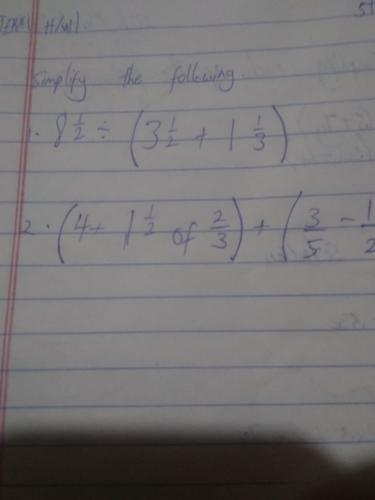 H/W
51
Simplify the following
1. 8 1/2 ÷ (3 1/2 + 1 1/3)
2. (4+ 1 1/2 of 2/3) + (3/5 - 1/2